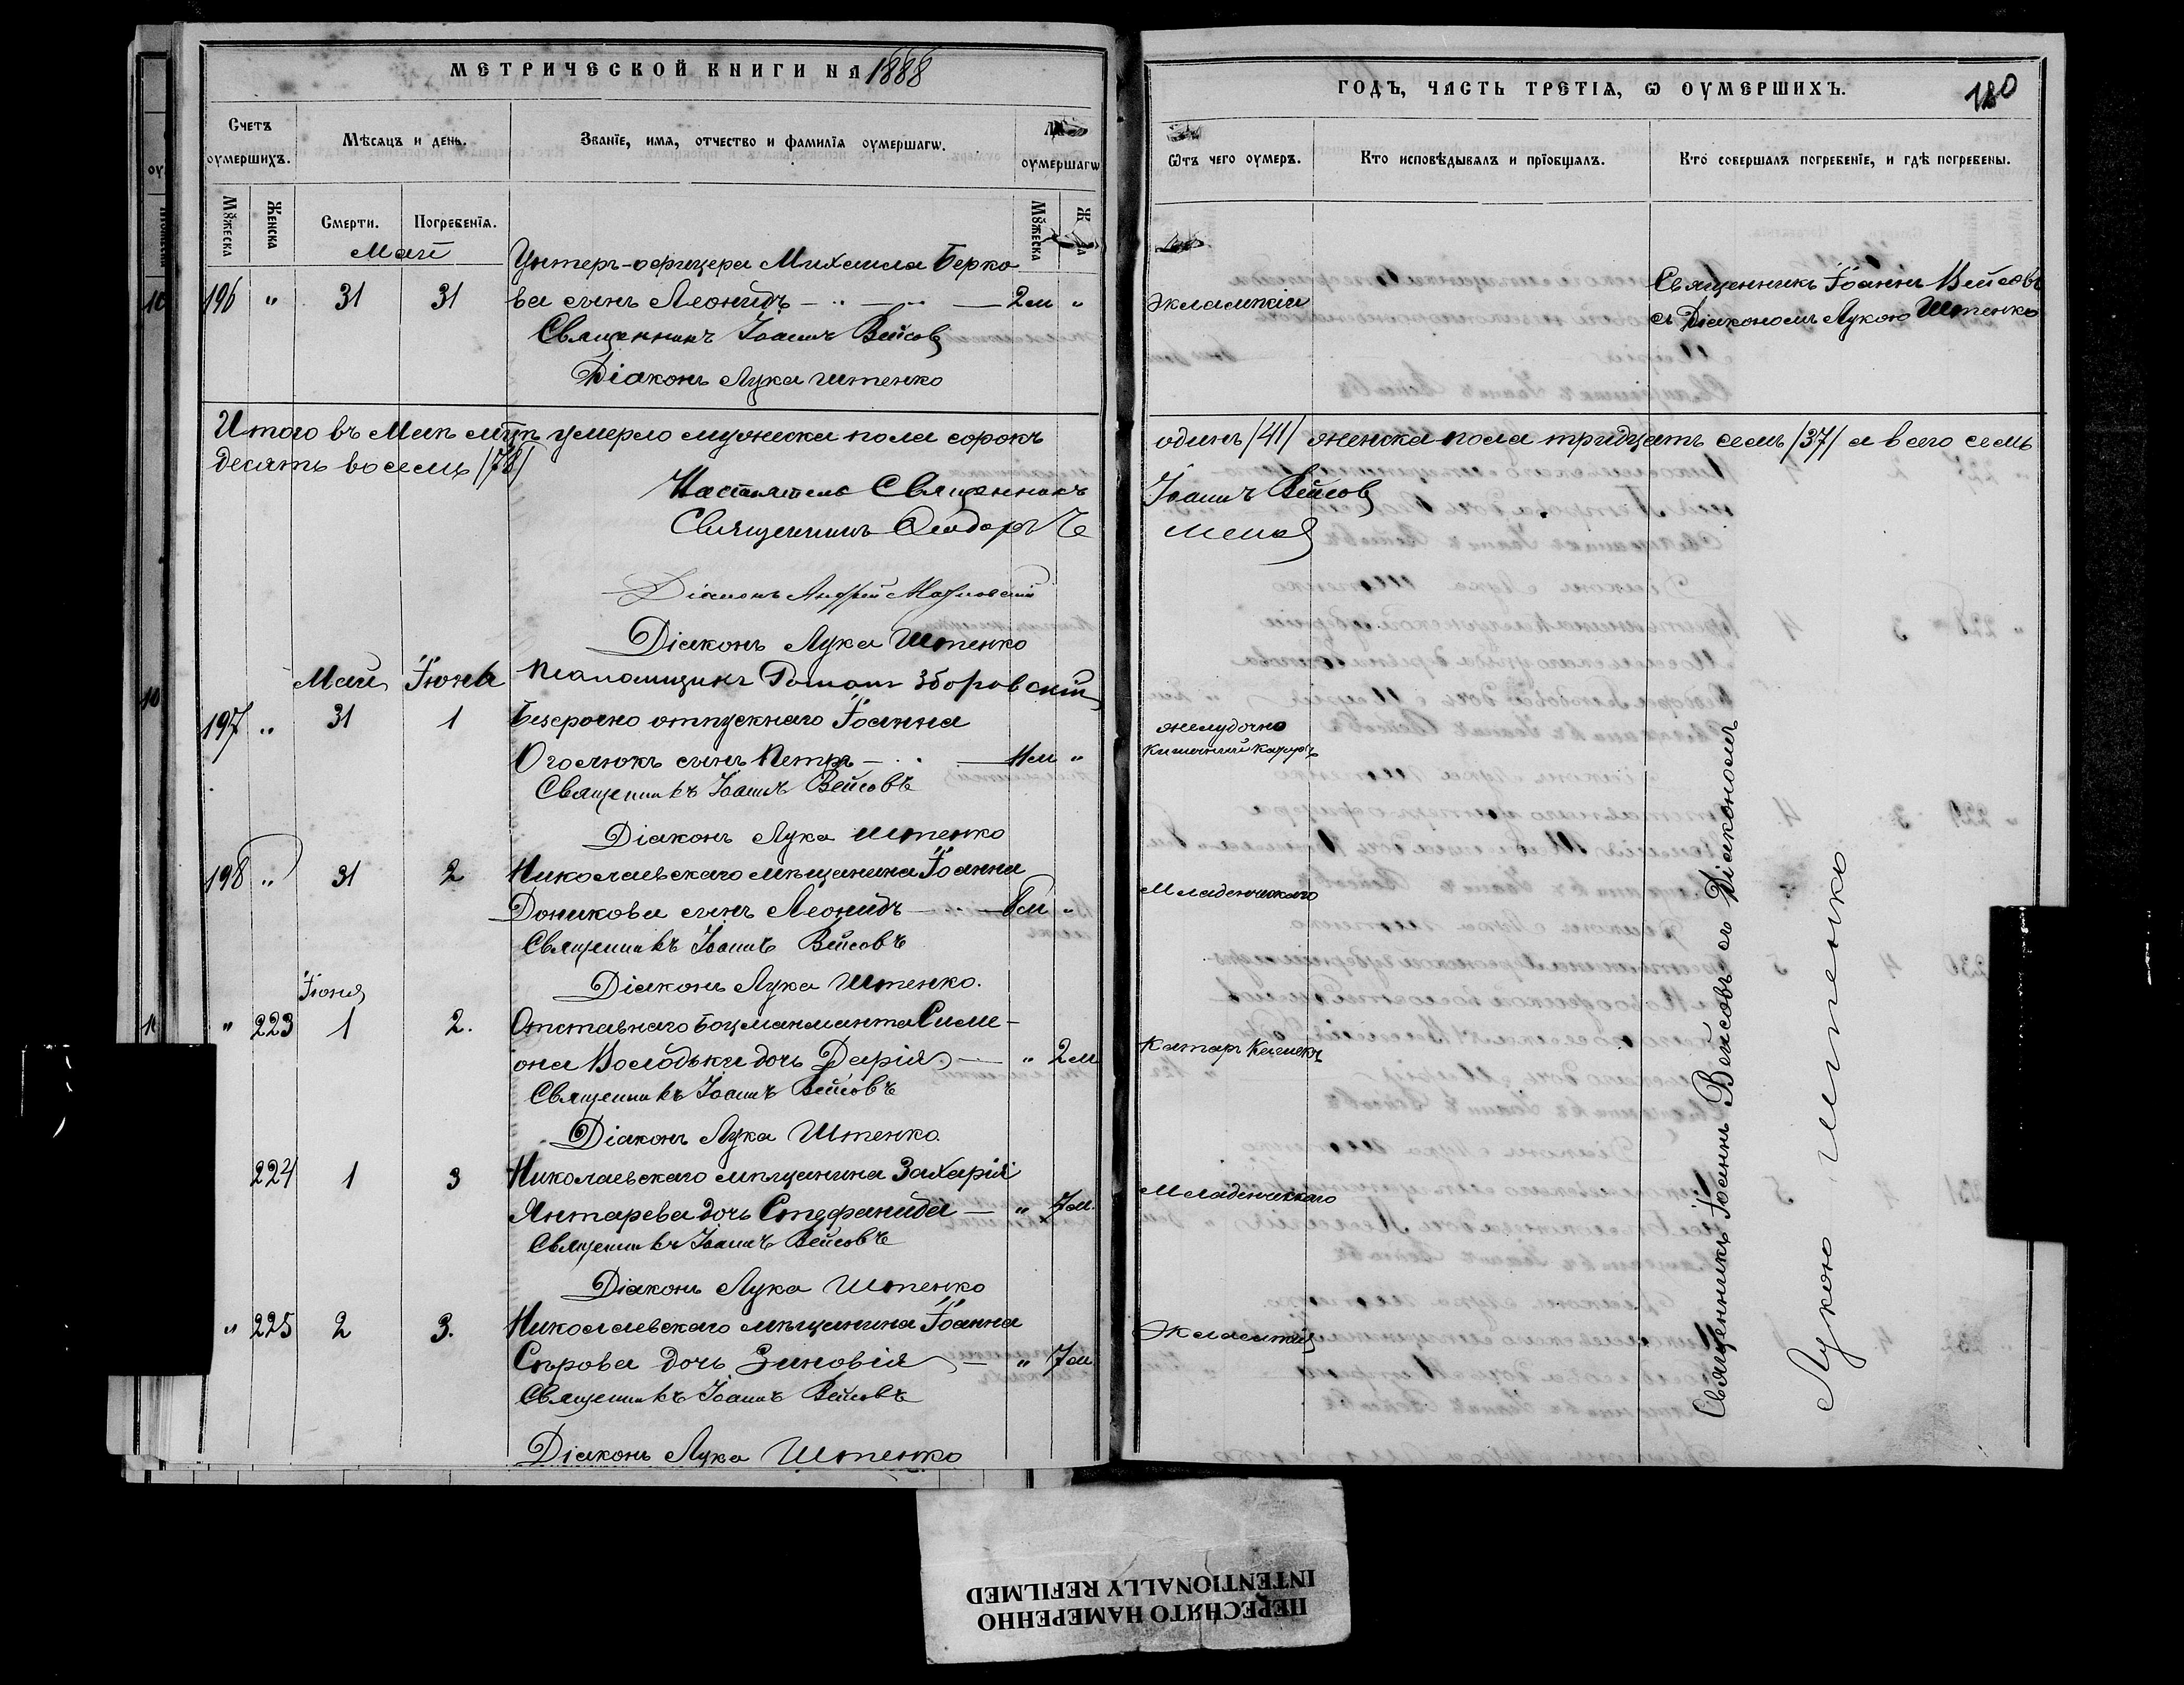 МЕТРИЧЕСКОЙ КНИГИ НА 1888
ГОДЪ, ЧАСТЬ ТРЕТІЯ, Ѡ ОУМЕРШИХЪ.
180
Счетъ оумершихъ.
Мѣсяцъ и день.
Званїе, имя, отчество и фамилїя оумершагѡ.
оумершагѡ
Ѿтъ чего оумеръ.
Кто исповѣдывалъ и прїобщалъ.
Кто совершалъ погребенїе, и гдѣ погребены.
Мꙋжеска
Женска
Смерти.
Погребенїя.
Мꙋжеска
Май
Унтеръ-офицера Михаила Берко
196 " 31 31 ва сынъ Леонидъ 2м "
Экламсіи
Священникъ Іоаннъ Вейсовъ
съ Діакономъ Лукою Штенко
Священникъ Іоаннъ Вейсов
Діаконъ Лука Штенко
Итого въ Маѣ м‑цѣ умерло мужеска пола сорокъ
одинъ /41/ женска пола тридцать семь /37/ а всего семь
десятъ восемь /78/
Настоятель Священникъ
Іоаннъ Вейсов
Священникъ Ѳеодоръ
Діаконъ Андрей
Діаконъ Лука Штенко
Май Іюнь
Псаломщикъ Романъ Зборовскій
197 " 31 1 Безсрочно отпускнаго Іоанна
Оголюкъ сынъ Петръ "
желудочно
кишечный катаръ
Священникъ Іоаннъ Вейсовъ
Діаконъ Лука Штенко
198 " 31 2 Николаевскаго мѣщанина Іоанна
Доникова сынъ Леонидъ 8м "
Младенческаго
Священникъ Іоаннъ Вейсовъ
Діаконъ Лука Штенко.
Іюня
" 223 1 2. Отставнаго Боцманманта Симе-
она Володьки дочь Дарія " 2м
Катаръ Кишекъ
Священникъ Іоаннъ Вейсовъ
Діаконъ Лука Штенко.
224 1 3 Николаевскаго мѣщанина Захарія
Янтарева дочь Стефанида " 7м.
Младенческаго
Священникъ Іоаннъ Вейсовъ
Діаконъ Лука Штенко
" 225 2 3. Николаевскаго мѣщанина Іоанна
Сѣрова дочь Зиновія " 7м
Экламсія
Священникъ Іоаннъ Вейсовъ
Діаконъ Лука Штенко
Священникъ Іоаннъ Вейсовъ съ Діакономъ
Лукою Штенко
ПЕРЕСНЯТО НАМЕРЕННО
INTENTIONALLY REFILMED